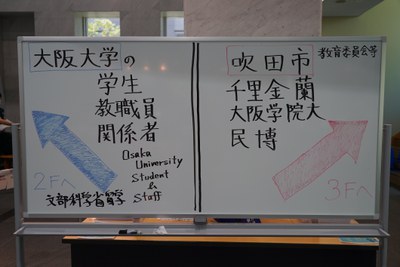 大阪大学の
学生
教職員
関係者
Osaka
University
Student
&
Staff
2Fへ
文部科学省
吹田市
教育委員会等
千里金蘭
大阪学院大
民博
3Fへ